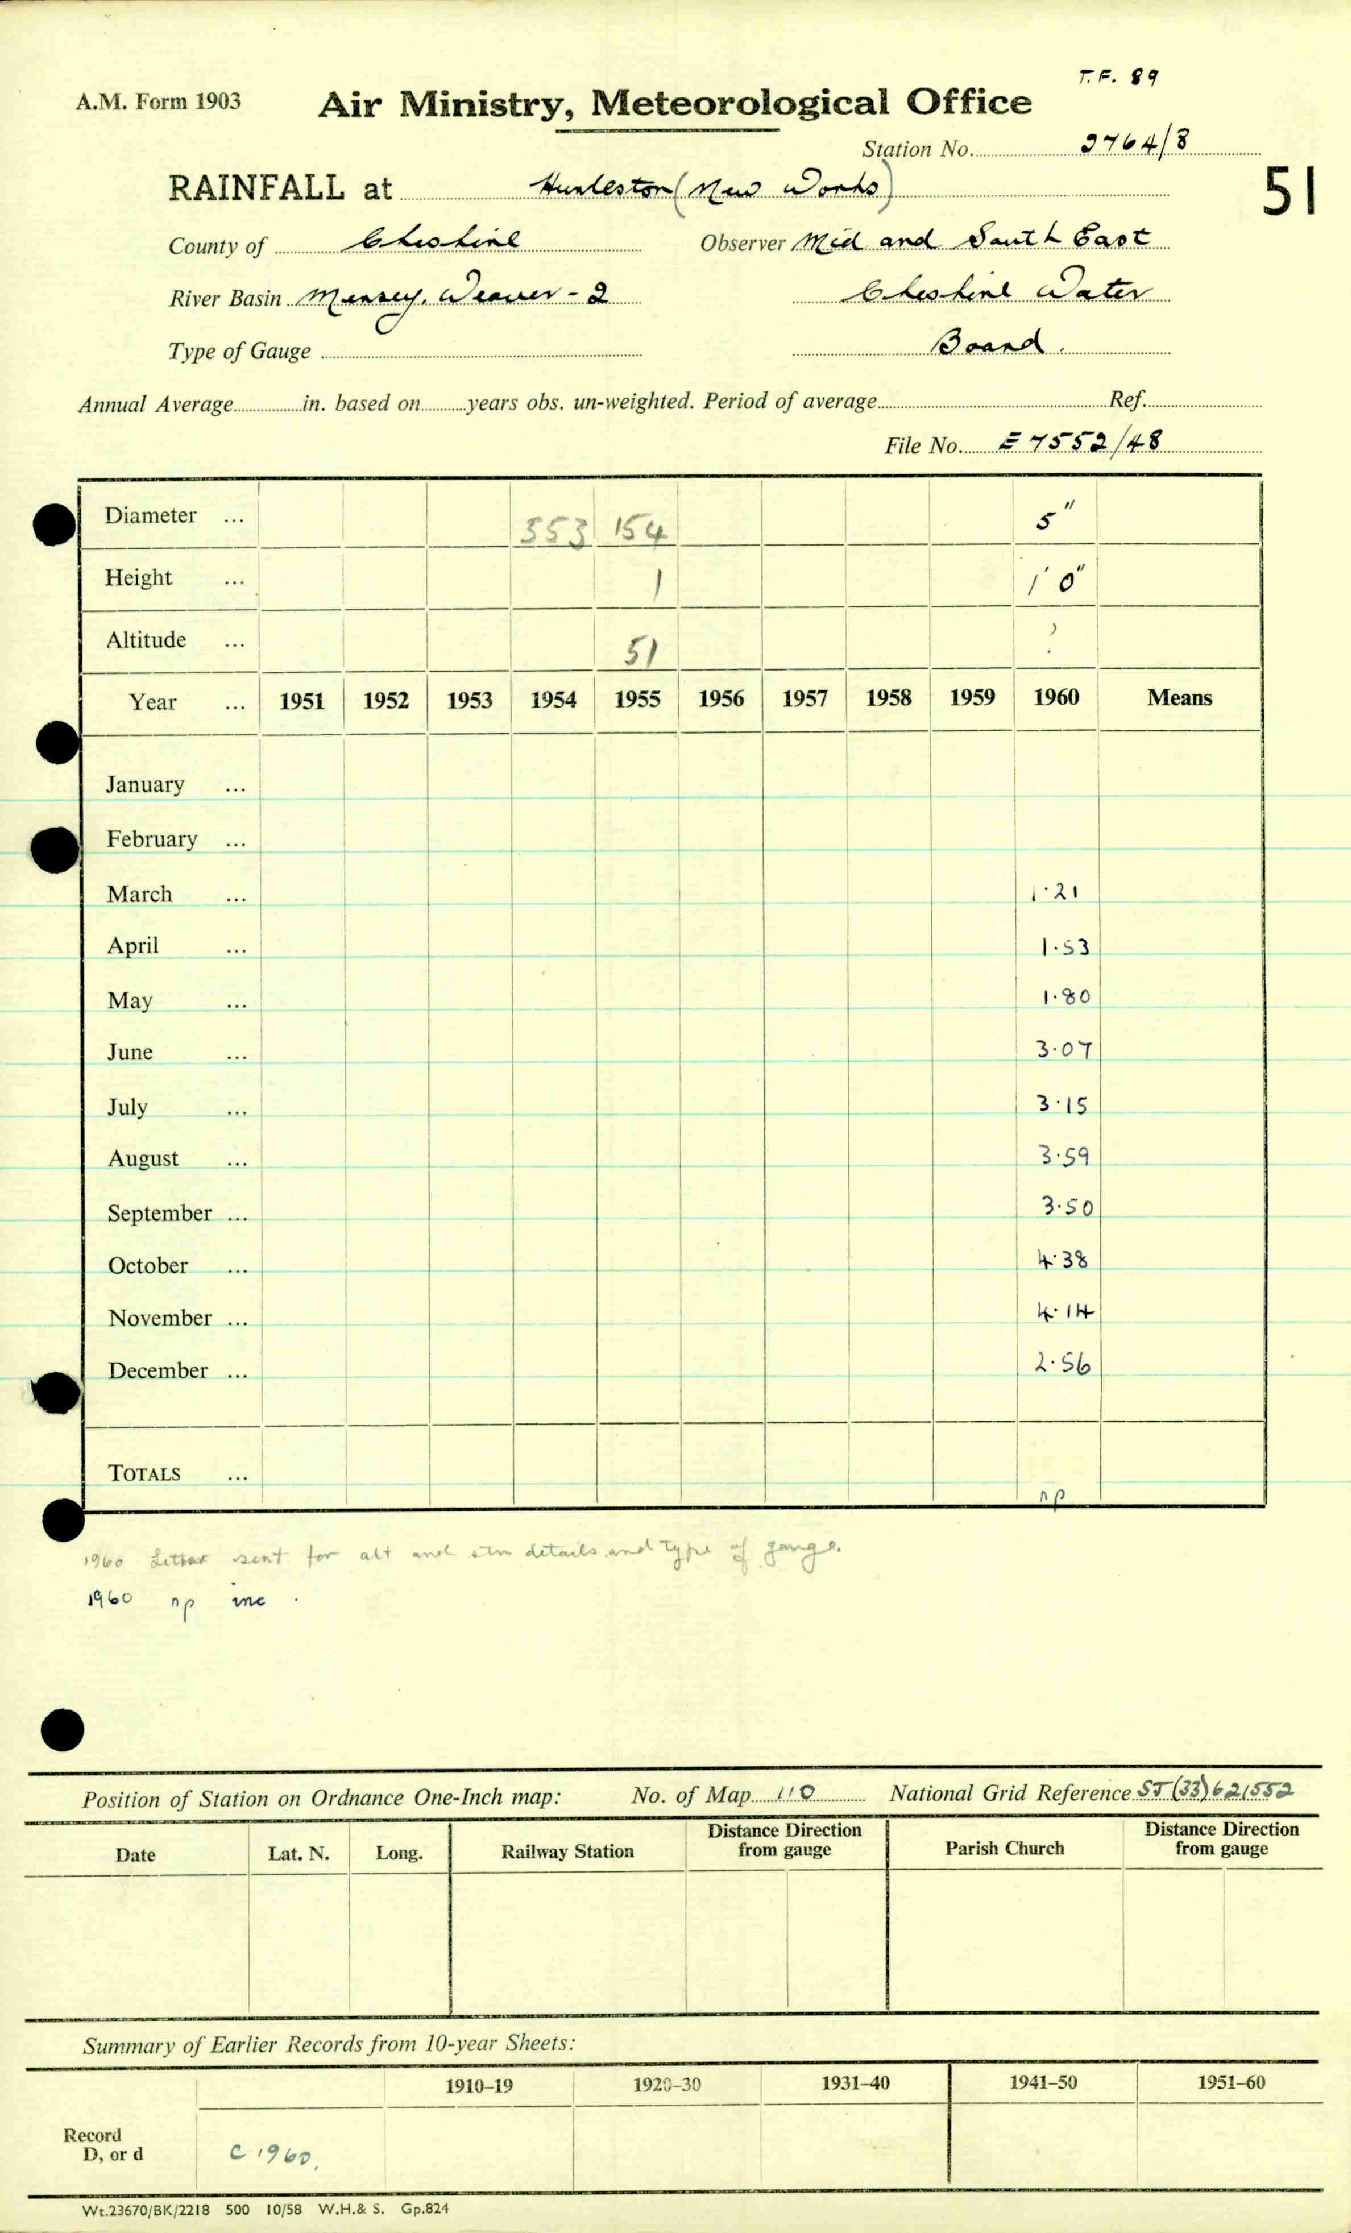 T.F. 89
A.M. Form 1903 Air Ministry, Meteorological Office
Station No. 2764/8
RAINFALL at Hurleston (New Works) 51
County of Cheshire Observer Mid and South East
River Basin Mersey. Weaver - 2 Cheshire Water
Type of Gauge Board.
Annual Average in. based on years obs. un-weighted. Period of average Ref.
File No. E 7552/48
Diameter ... 353 154 5"
Height ... 1 1' 0"
Altitude ... 51 ?
Year ... 1951 1952 1953 1954 1955 1956 1957 1958 1959 1960 Means
January ...
February ...
March ... 1.21
April ... 1.53
May ... 1.80
June ... 3.07
July ... 3.15
August ... 3.59
September ... 3.50
October ... 4.38
November ... 4.14
December ... 2.56
TOTALS ... np
1960 Letter sent for alt and stn details and type of gauge.
1960 np inc.
Position of Station on Ordnance One-Inch map: No. of Map 110 National Grid Reference SJ (33) 621552
Date Lat. N. Long. Railway Station Distance Direction from gauge Parish Church Distance Direction from gauge
Summary of Earlier Records from 10-year Sheets:
1910–19 1920–30 1931–40 1941–50 1951–60
Record
D, or d C 1960.
Wt.23670/BK/2218 500 10/58 W.H.& S. Gp.824